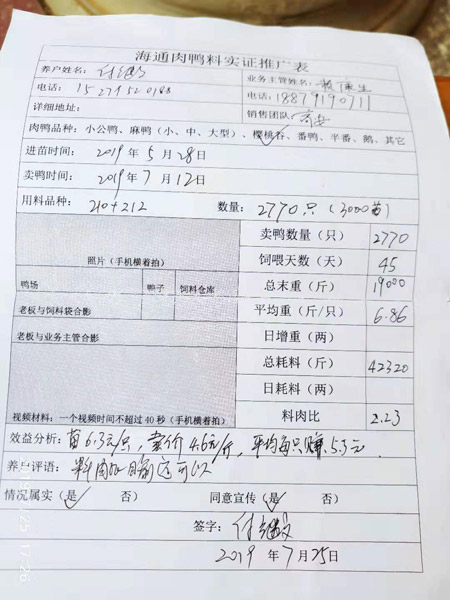 海通肉鸭料实证推广表
养户姓名： 业务主管姓名：
电话： 电话：18879190711
详细地址： 销售团队：
肉鸭品种：小公鸭、麻鸭（小、中、大型）、樱桃谷、番鸭、半番、鹅、其它
进苗时间： 2019年5月28日
卖鸭时间： 2019年7月12日
用料品种： 210+212 数量：2770只（3000苗）
卖鸭数量（只） 2770
饲喂天数（天） 45
照片（手机横着拍）
总末重（斤） 19000
鸭场 鸭子 饲料仓库
平均重（斤/只） 6.86
老板与饲料袋合影
日增重（两）
老板与业务主管合影
总耗料（斤） 42320
日耗料（两）
视频材料：一个视频时间不超过40秒（手机横着拍）
料肉比 2.23
效益分析：苗6.3元/只，卖价4.6元/斤，平均每只赚5.3元
养户评语：料肉比 还可以
情况属实（是 否） 同意宣传（是 否）
签字：
2019年7月25日